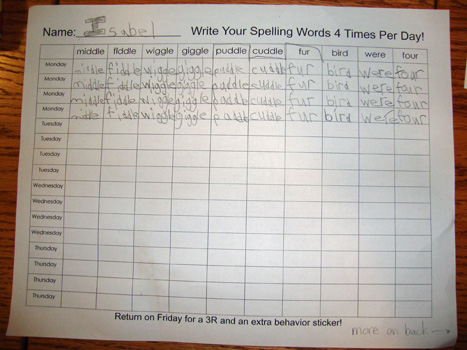 Name: Isabel Write Your Spelling Words 4 Times Per Day!
middle fiddle wiggle giggle puddle cuddle fur bird were four
Monday middle fiddle wiggle giggle puddle cuddle fur bird were four
Monday middle fiddle wiggle giggle puddle cuddle fur bird were four
Monday middle fiddle wiggle giggle puddle cuddle fur bird were four
Monday middle fiddle wiggle giggle puddle cuddle fur bird were four
Tuesday
Tuesday
Tuesday
Tuesday
Wednesday
Wednesday
Wednesday
Wednesday
Thursday
Thursday
Thursday
Thursday
Return on Friday for a 3R and an extra behavior sticker!
more on back →